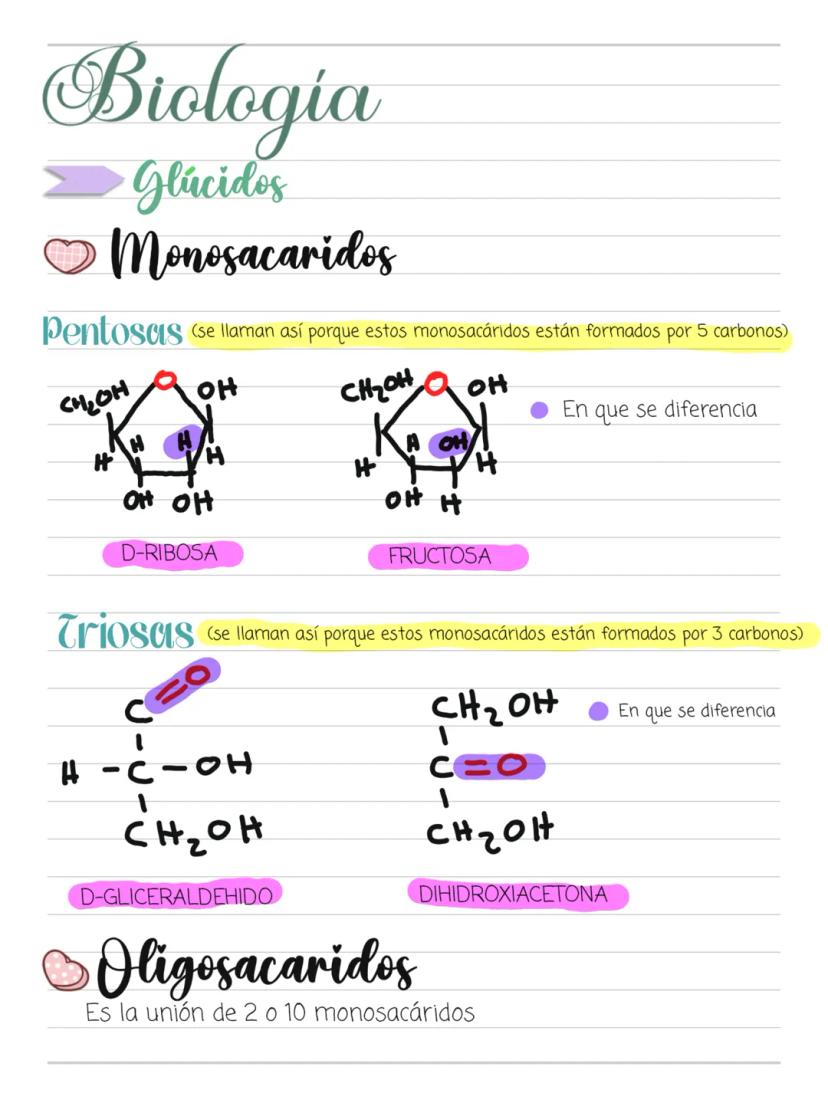 Biología
Glúcidos
Monosacaridos
Pentosas (se llaman así porque estos monosacáridos están formados por 5 carbonos)
CH2OH O OH CH2OH O OH
En que se diferencia
H H H H H OH H
OH OH OH H
D-RIBOSA FRUCTOSA
Triosas (se llaman así porque estos monosacáridos están formados por 3 carbonos)
C=O CH2OH
En que se diferencia
H-C-OH C=O
CH2OH CH2OH
D-GLICERALDEHIDO DIHIDROXIACETONA
Oligosacaridos
Es la unión de 2 o 10 monosacáridos